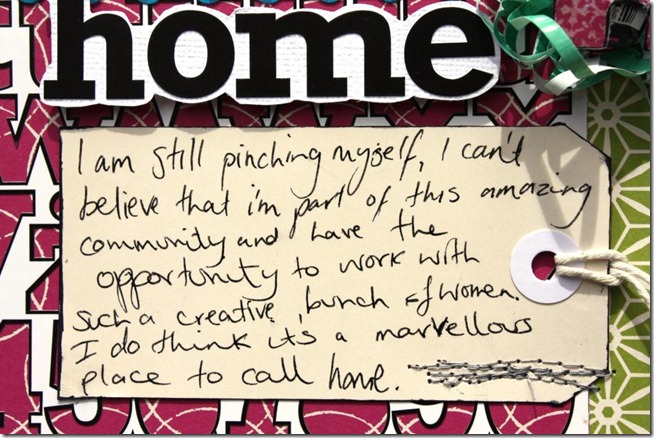 home
I am still pinching myself, I can't
believe that i'm part of this amazing
community and have the
opportunity to work with
such a creative bunch of women.
I do think its a marvellous
place to call home.